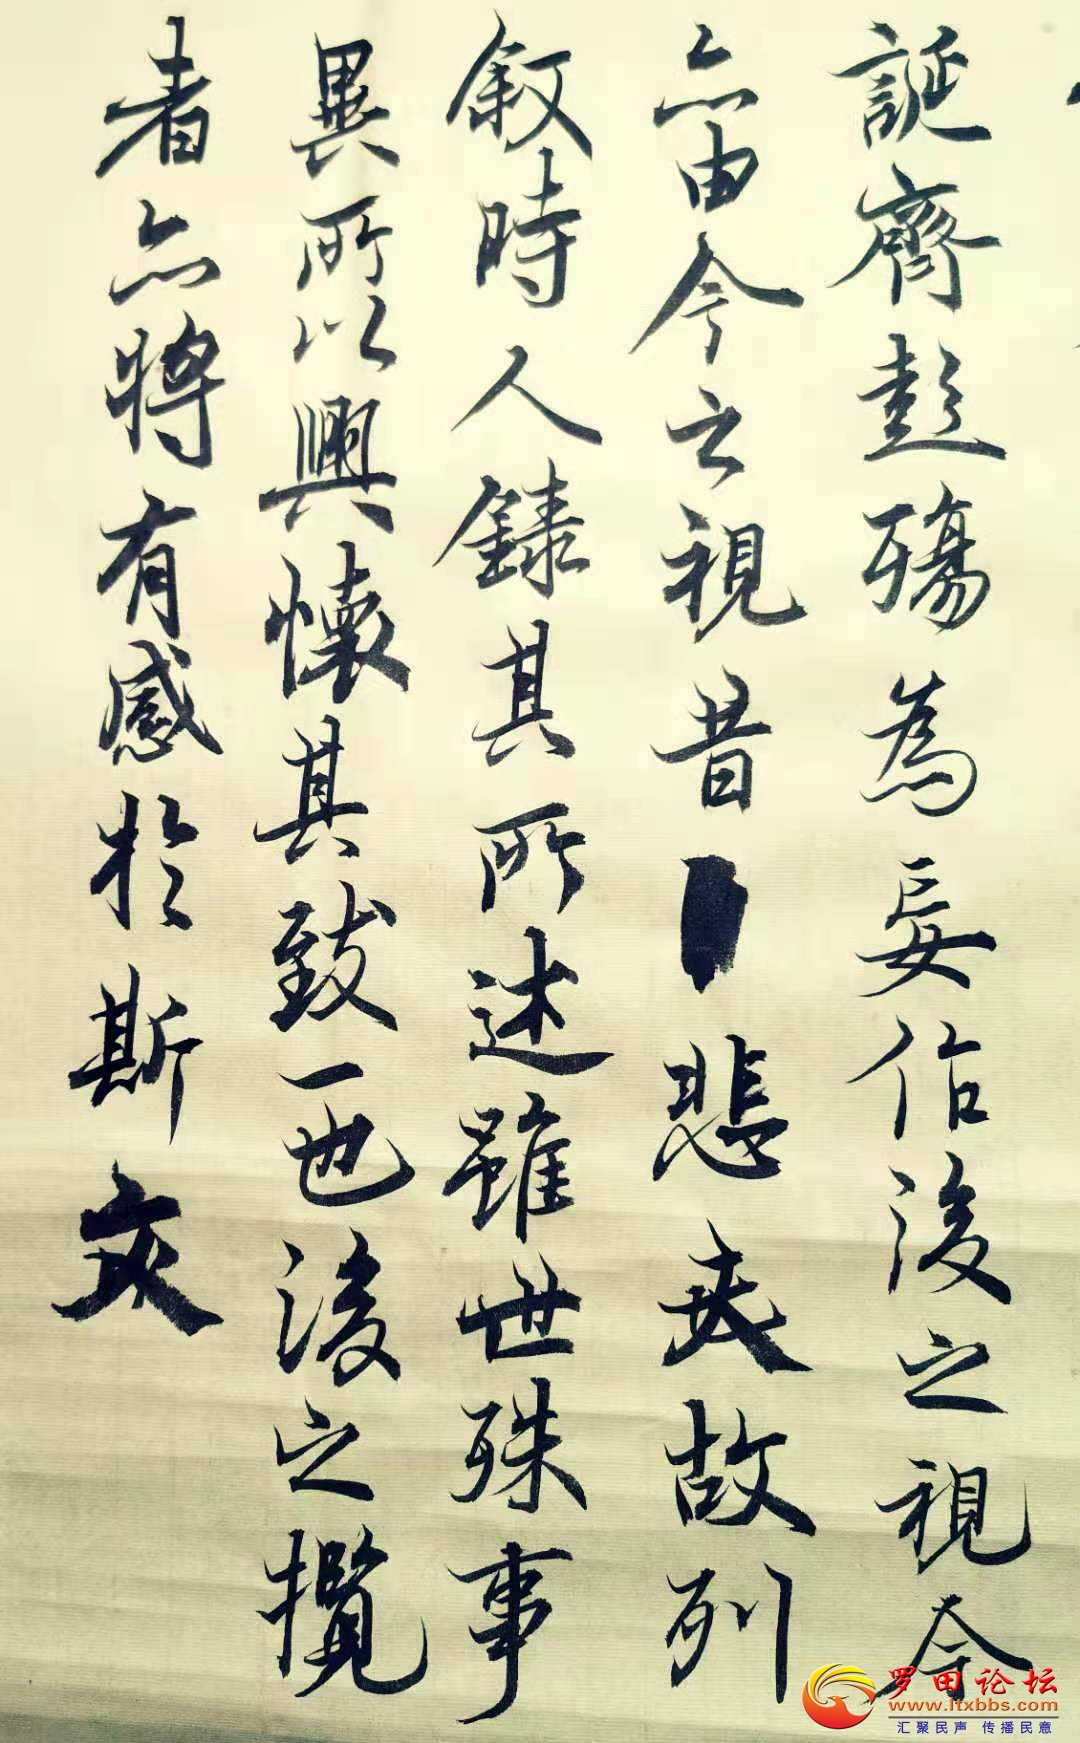 誕齊彭殤為妄作後之視今
亦由今之視昔悲夫故列
敘時人錄其所述雖世殊事
異所以興懷其致一也後之攬
者亦將有感於斯文
罗田论坛
www.ltxbbs.com
汇聚民声 传播民意